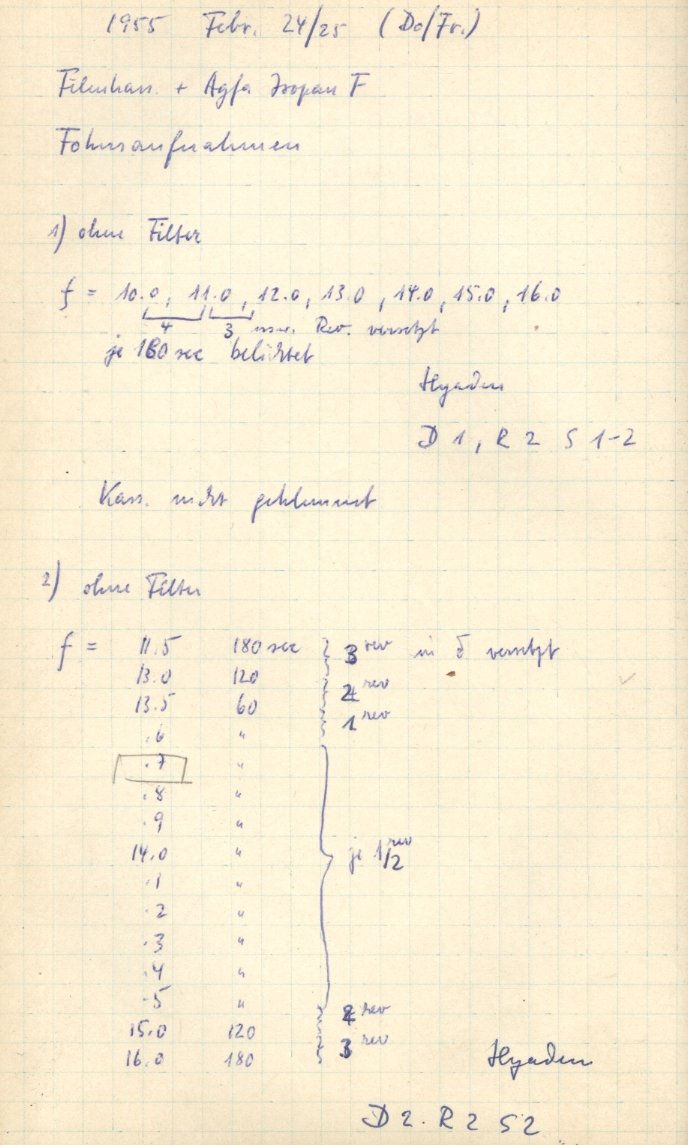 1955 Febr. 24/25 (Do/Fr.)
Filmkass. + Agfa Isopan F
Fokusaufnahmen
1) ohne Filter
f = 10.0, 11.0, 12.0, 13.0, 14.0, 15.0, 16.0
4 3 usw. Rev. versetzt
je 180 sec belichtet
Hyaden
D 1, R 2 S 1-2
Kass. nicht geklemmt
2) ohne Filter
f = 11.5 180 sec 3 rev in δ versetzt
13.0 120 2 rev
13.5 60 1 rev
.6 "
.7 "
.8 "
.9 "
14.0 " je 1/2 rev
.1 "
.2 "
.3 "
.4 "
.5 "
2 rev
15.0 120
3 rev
16.0 180
Hyaden
D 2. R 2 S 2